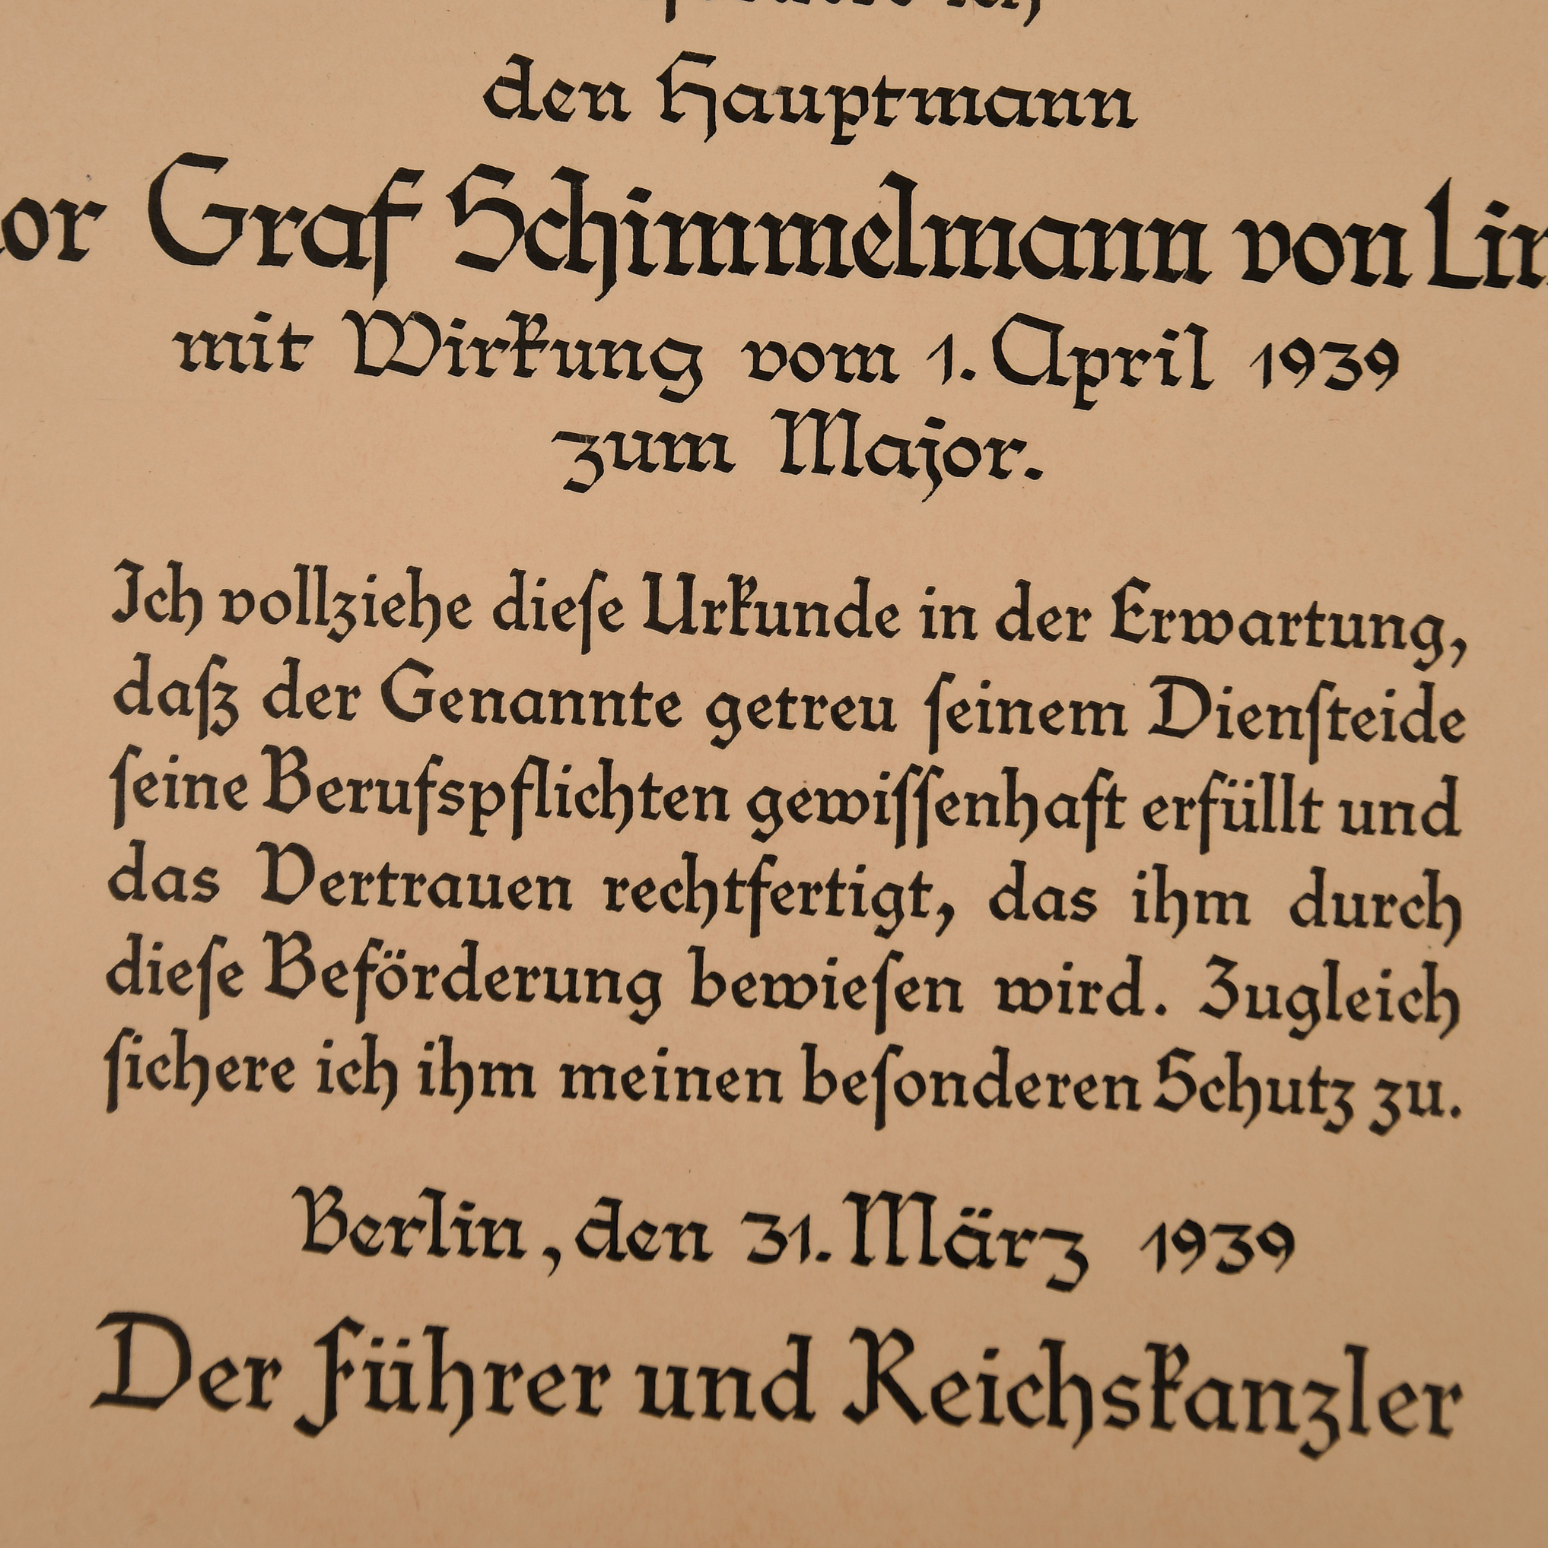 ich
den Hauptmann
Graf Schimmelmann von
mit Wirkung vom 1. April 1939
zum Major.
Ich vollziehe dieſe Urkunde in der Erwartung,
daſz der Genannte getreu ſeinem Dienſteide
ſeine Berufspflichten gewiſſenhaft erfüllt und
das Vertrauen rechtfertigt, das ihm durch
dieſe Beförderung bewieſen wird. Zugleich
ſichere ich ihm meinen beſonderen Schutz zu.
Berlin, den 31. März 1939
Der Führer und Reichskanzler